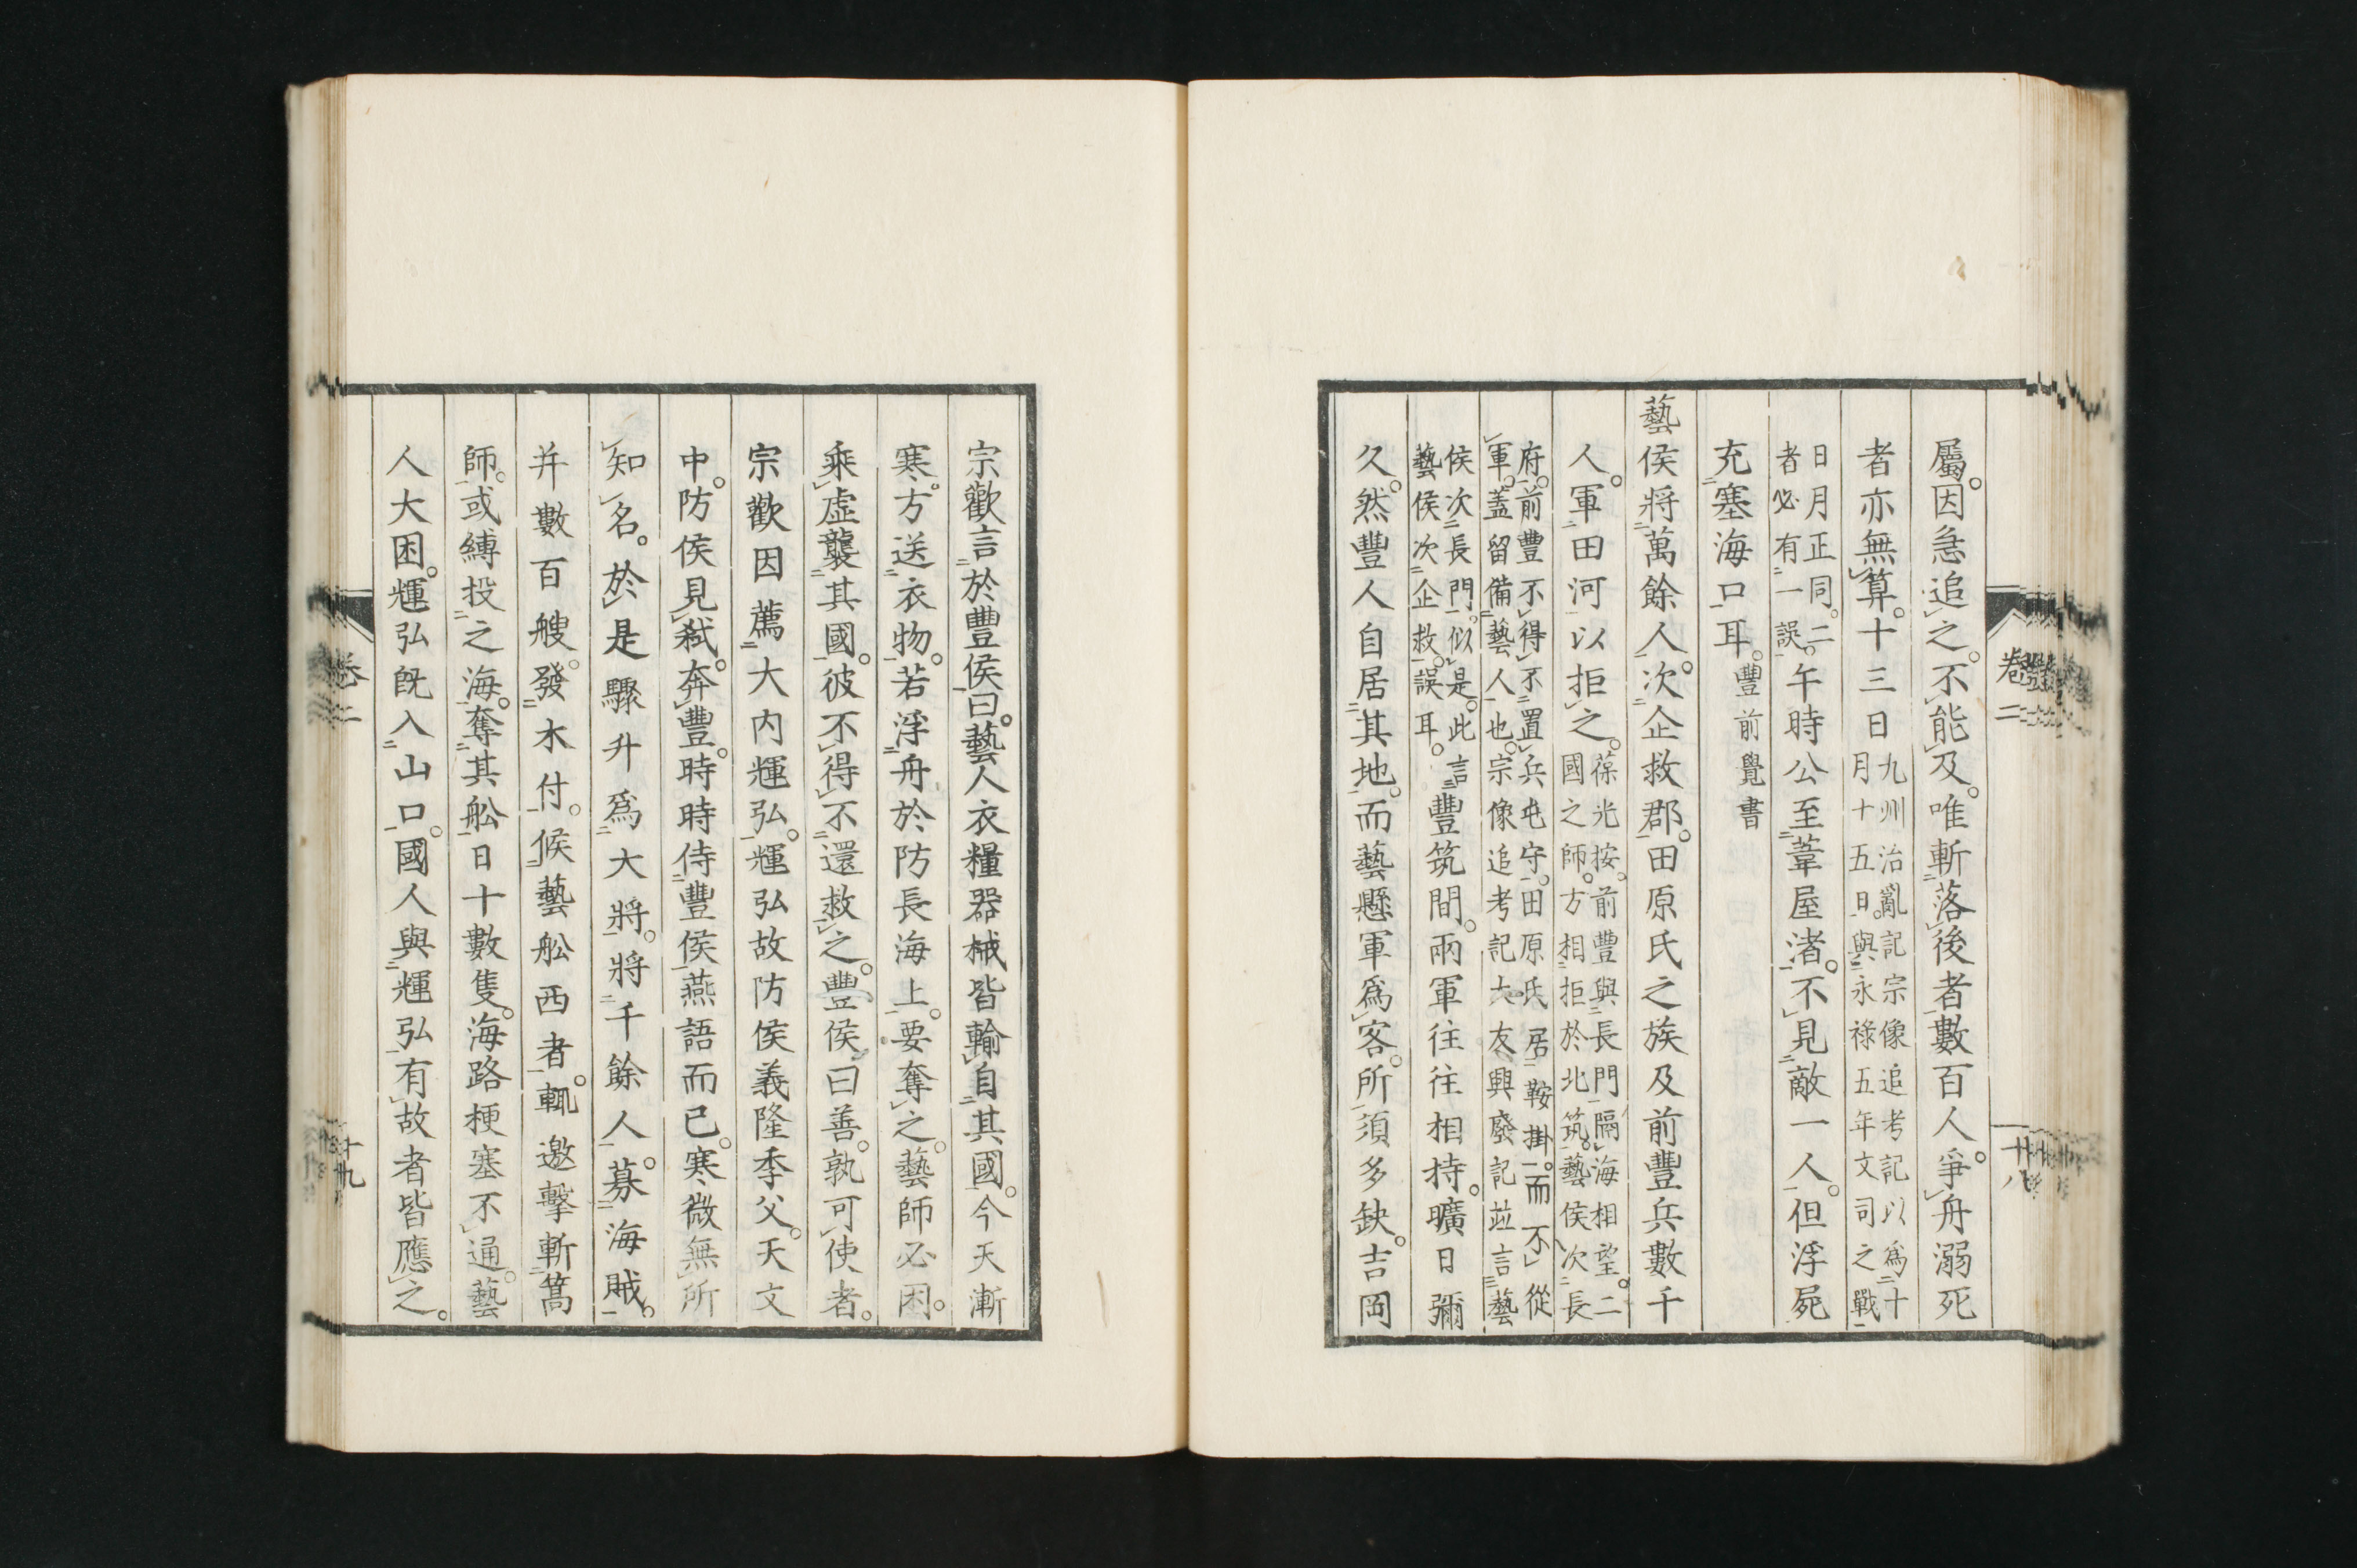 屬。因急追之。不能及。唯斬落後者數百人。爭舟溺死
者亦無算。十三日九州治亂記宗像追考記以爲十
月十五日。與永祿五年文司之戰
日月正同。二
者必有一誤。午時公至葦屋渚。不見敵一人。但浮屍
充塞海口耳。豐前覺書
藝侯將萬餘人。次企救郡。田原氏之族及前豐兵數千
人。軍田河以拒之。葆光按。前豐與長門隔海相望。二
國之師。方相拒於北筑。藝侯次長
府。前豐不得不置兵屯守。田原氏居鞍掛。而不從
軍。蓋留備藝人也。宗像追考記大友興廢記竝言藝
侯次長門。似是。此言
藝侯次企救。誤耳。豐筑間。兩軍往往相持。曠日彌
久。然豐人自居其地。而藝懸軍爲客。所須多缺。吉岡
卷二
十八
宗歡言於豐侯曰。藝人衣糧器械皆輸自其國。今天漸
寒。方送衣物。若浮舟於防長海上。要奪之。藝師必困。
乘虛襲其國。彼不得不還救之。豐侯曰善。孰可使者。
宗歡因薦大内輝弘。輝弘故防侯義隆季父。天文
中。防侯見弑。奔豐。時時侍豐侯燕語而已。寒微無所
知名。於是驟升爲大將。將千餘人。募海賊。
并數百艘。發木付。候藝舩西者。輒邀擊斬篙
師。或縛投之海。奪其舩日十數隻。海路梗塞不通。藝
人大困。輝弘既入山口。國人與輝弘有故者皆應之。
卷二
十九